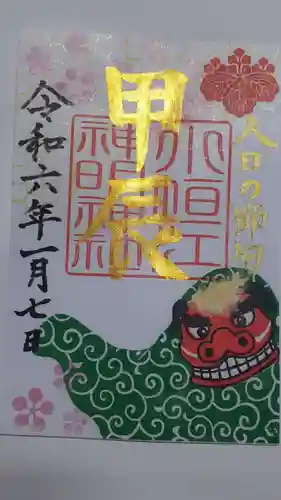 人日の節句
甲辰
小垣江
神明神社
令和六年一月七日